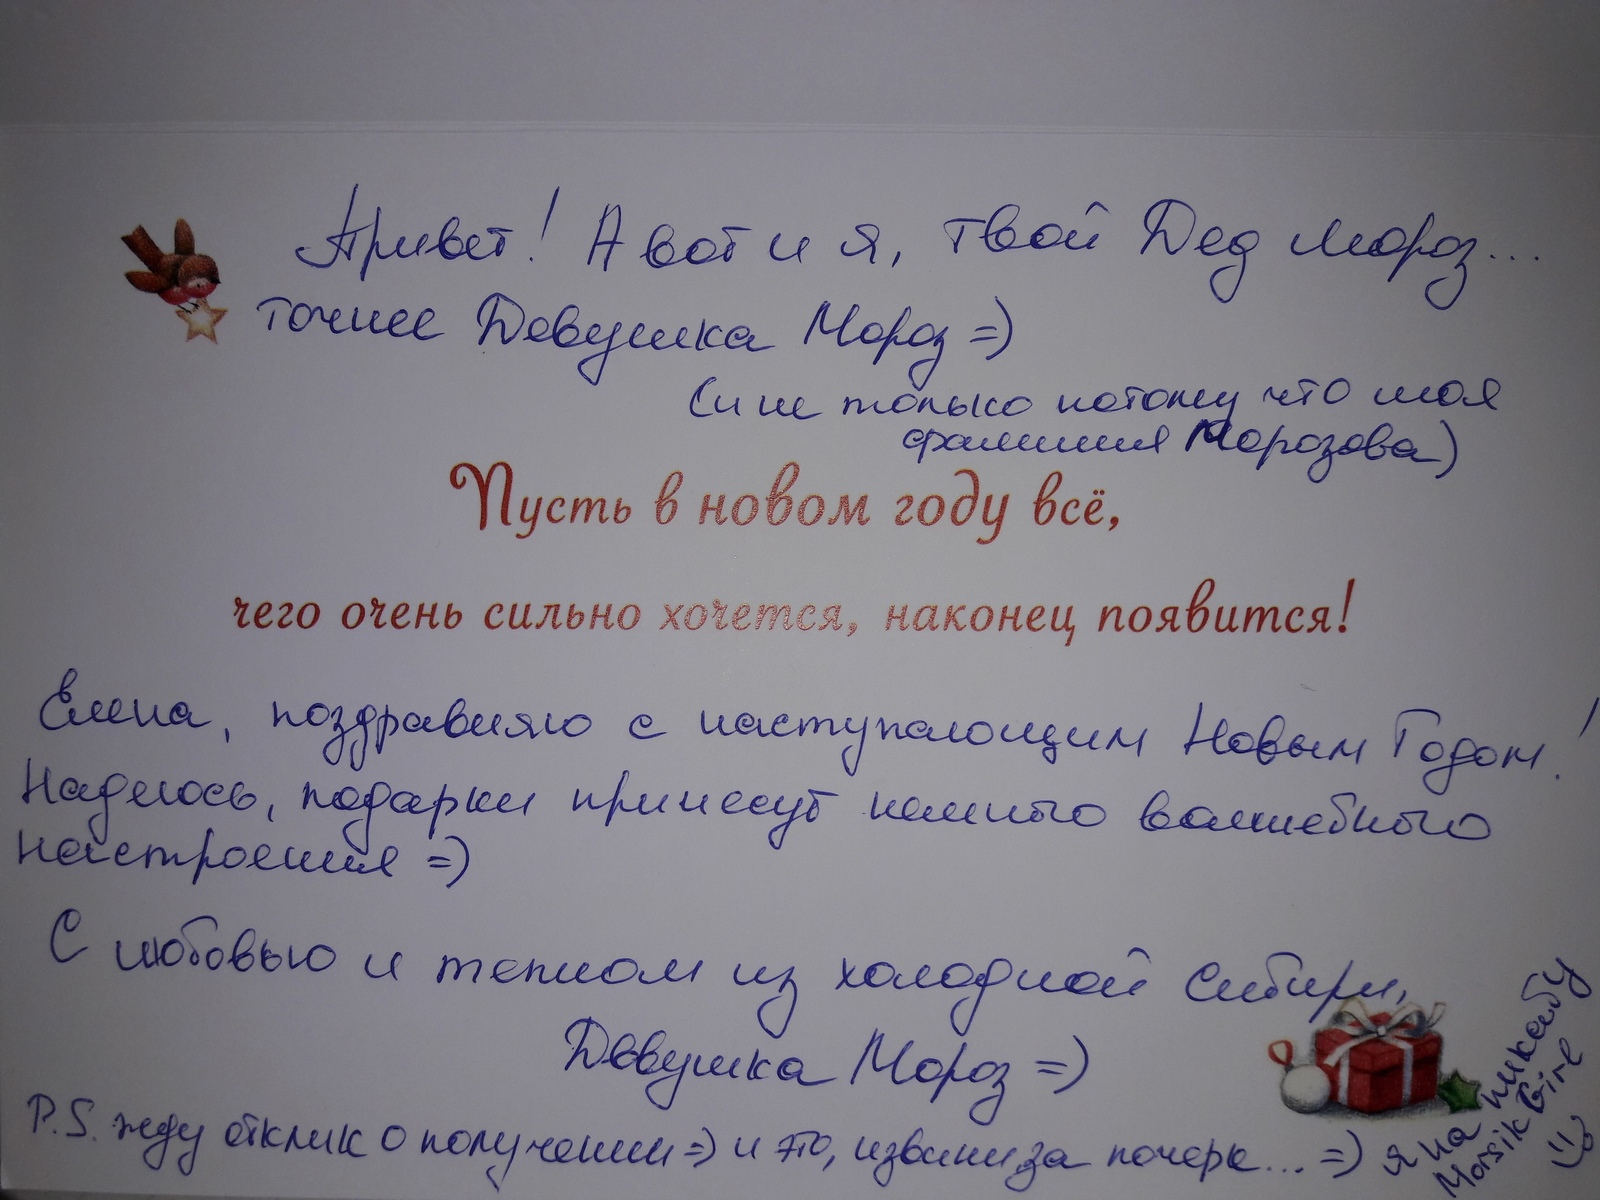 Привет! А вот и я, твой Дед Мороз...
точнее Девушка Мороз =)
(и не только потому что моя
фамилия Морозова)
Пусть в новом году всё,
чего очень сильно хочется, наконец появится!
Елена, поздравляю с наступающим Новым Годом!
Надеюсь, подарки принесут немного волшебного
настроения =)
С любовью и теплом из холодной Сибири,
Девушка Мороз =)
P.S. жду отклик о получении =) и это, извини за почерк... =)
я на пикабу
Morsik Girl
=)